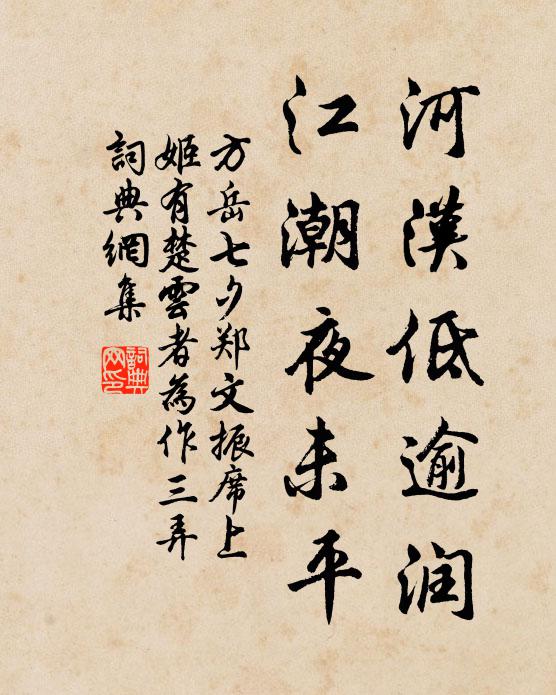 河漢低逾润
江潮夜未平
方岳七夕郑文振席上
姬有楚雲者為作三弄
詞典網集
詞典网印